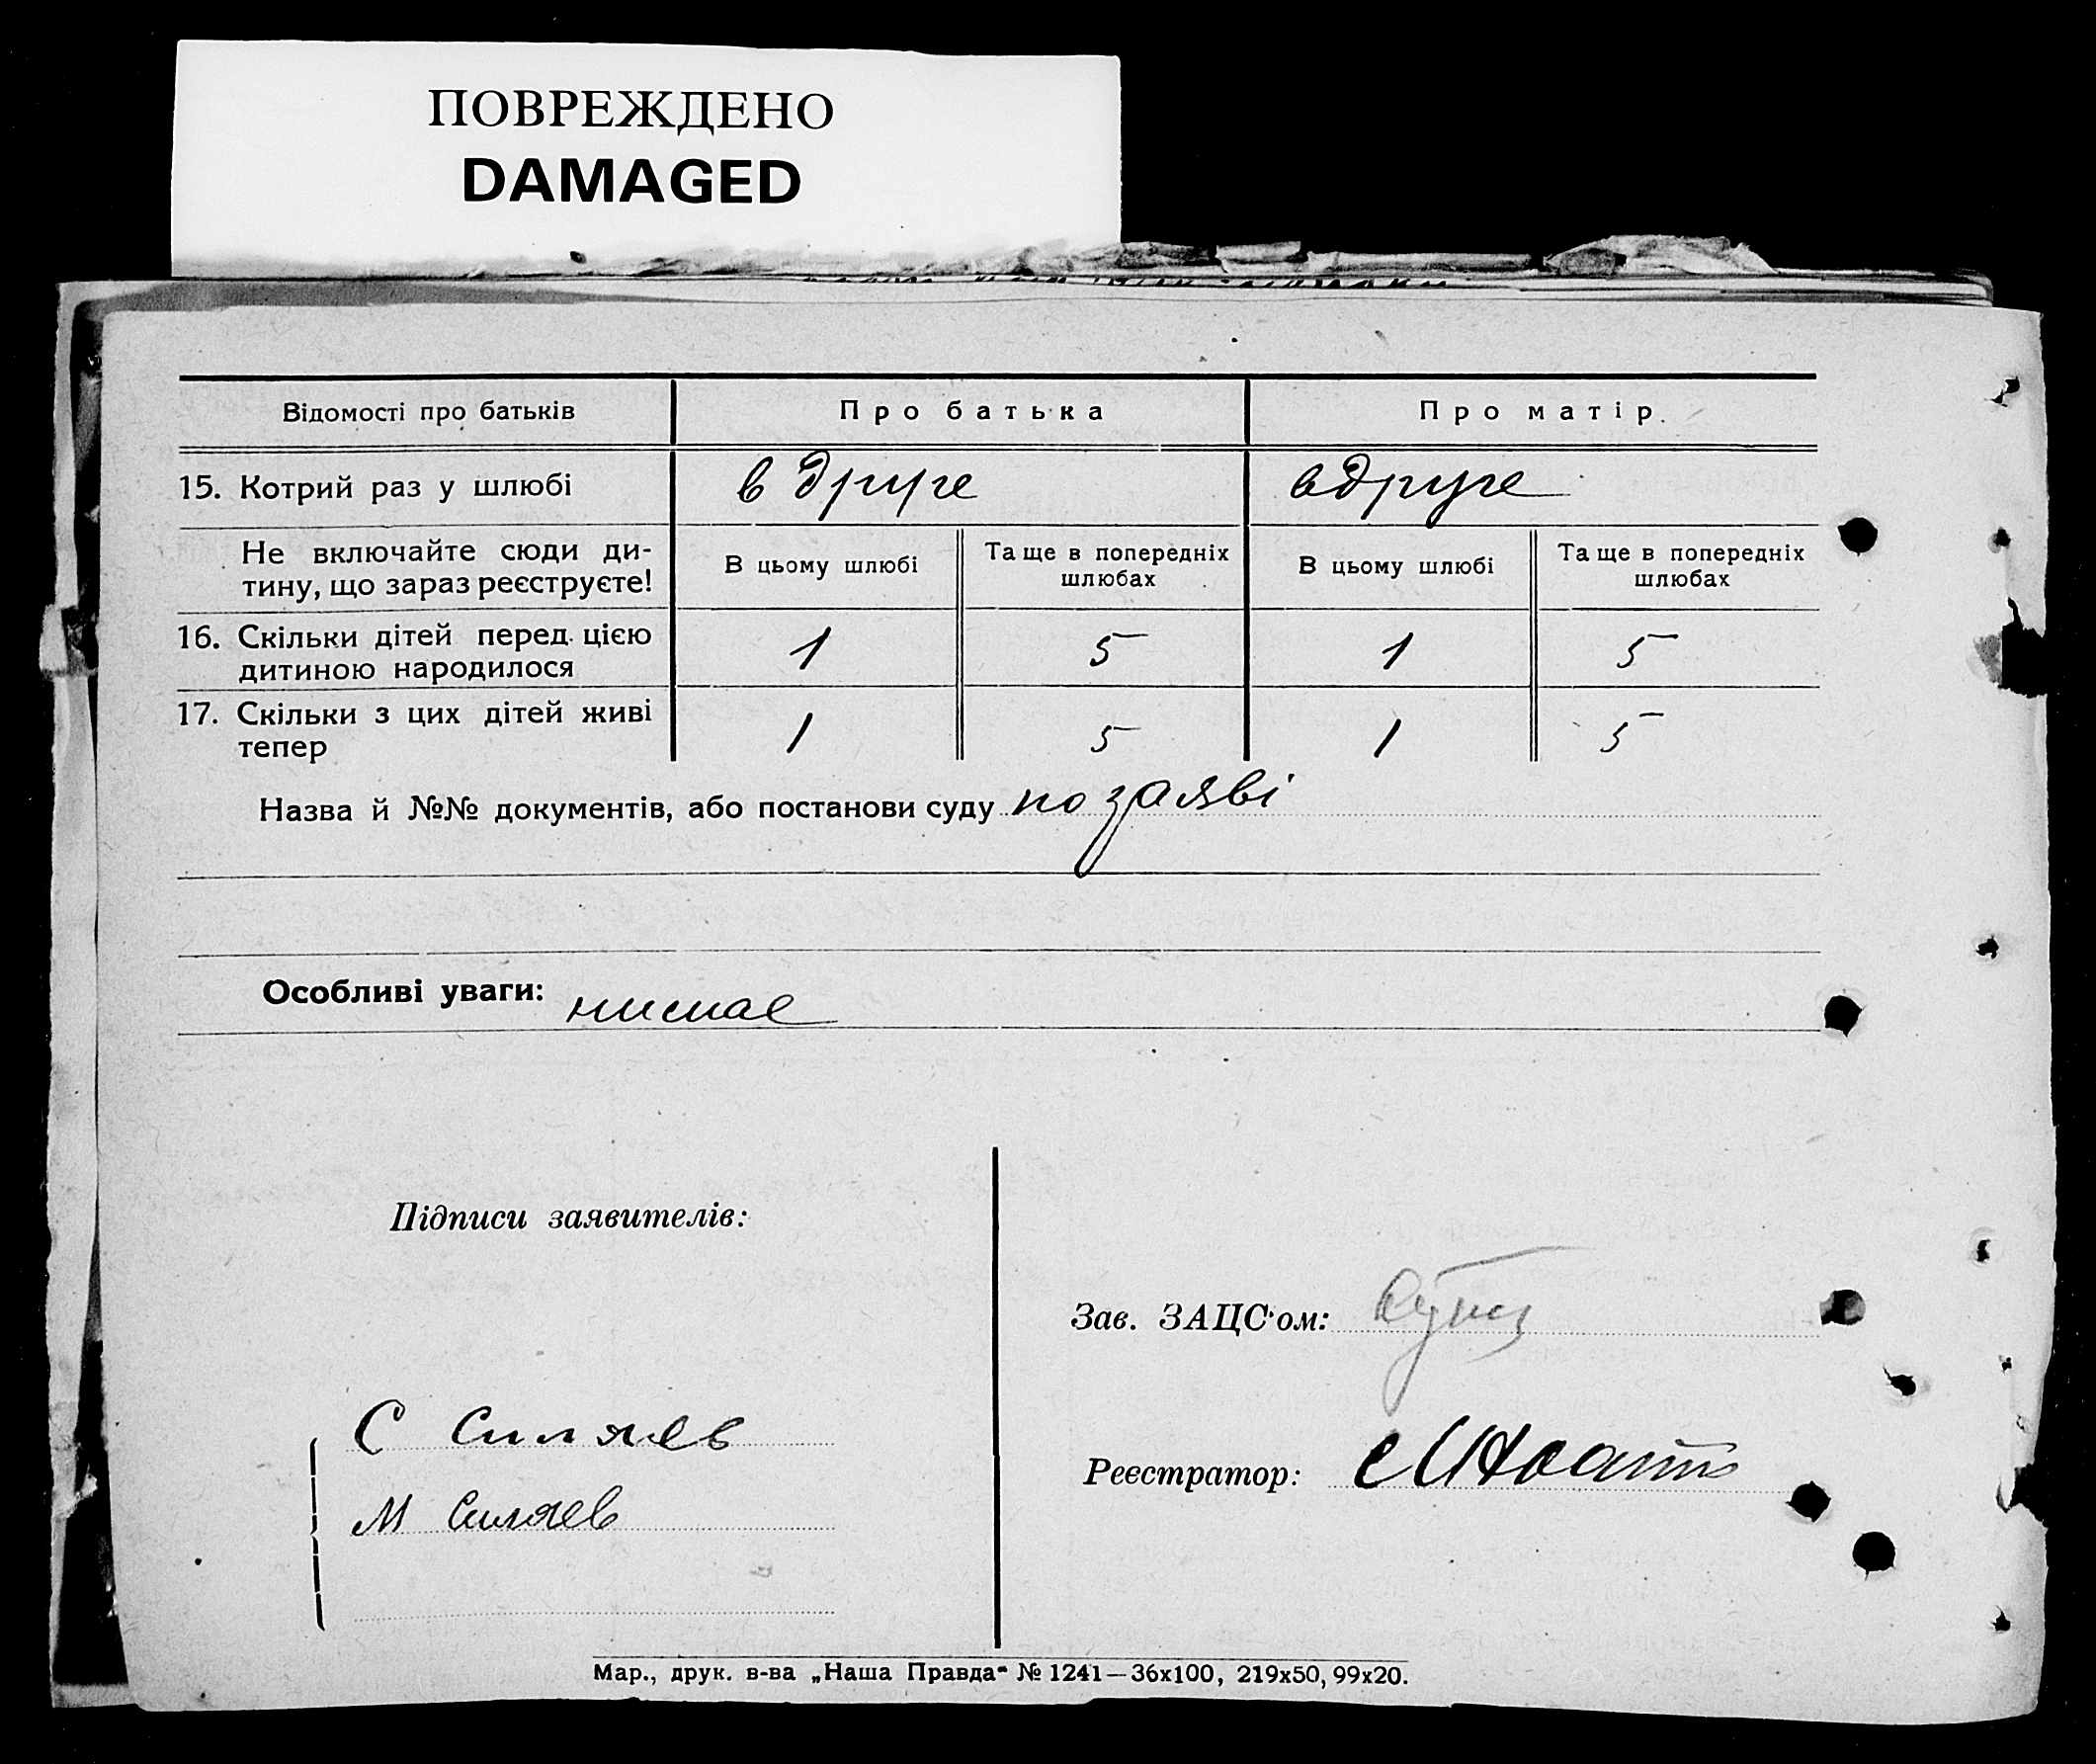 ПОВРЕЖДЕНО
DAMAGED
Відомості про батьків Про батька Про матір
15. Котрий раз у шлюбі в друге вдруге
Не включайте сюди ди-
тину, що зараз реєструєте!
В цьому шлюбі
Та ще в попередніх
шлюбах
В цьому шлюбі
Та ще в попередніх
шлюбах
16. Скільки дітей перед цією
дитиною народилося
1 5 1 5
17. Скільки з цих дітей живі
тепер
1 5 1 5
Назва й №№ документів, або постанови суду по заяві
Особливі уваги: нимае
Підписи заявителів:
С Силяев
М Силяев
Зав. ЗАЦС'ом:
Реєстратор:
Мар., друк. в-ва „Наша Правда" № 1241—36х100, 219х50, 99х20.